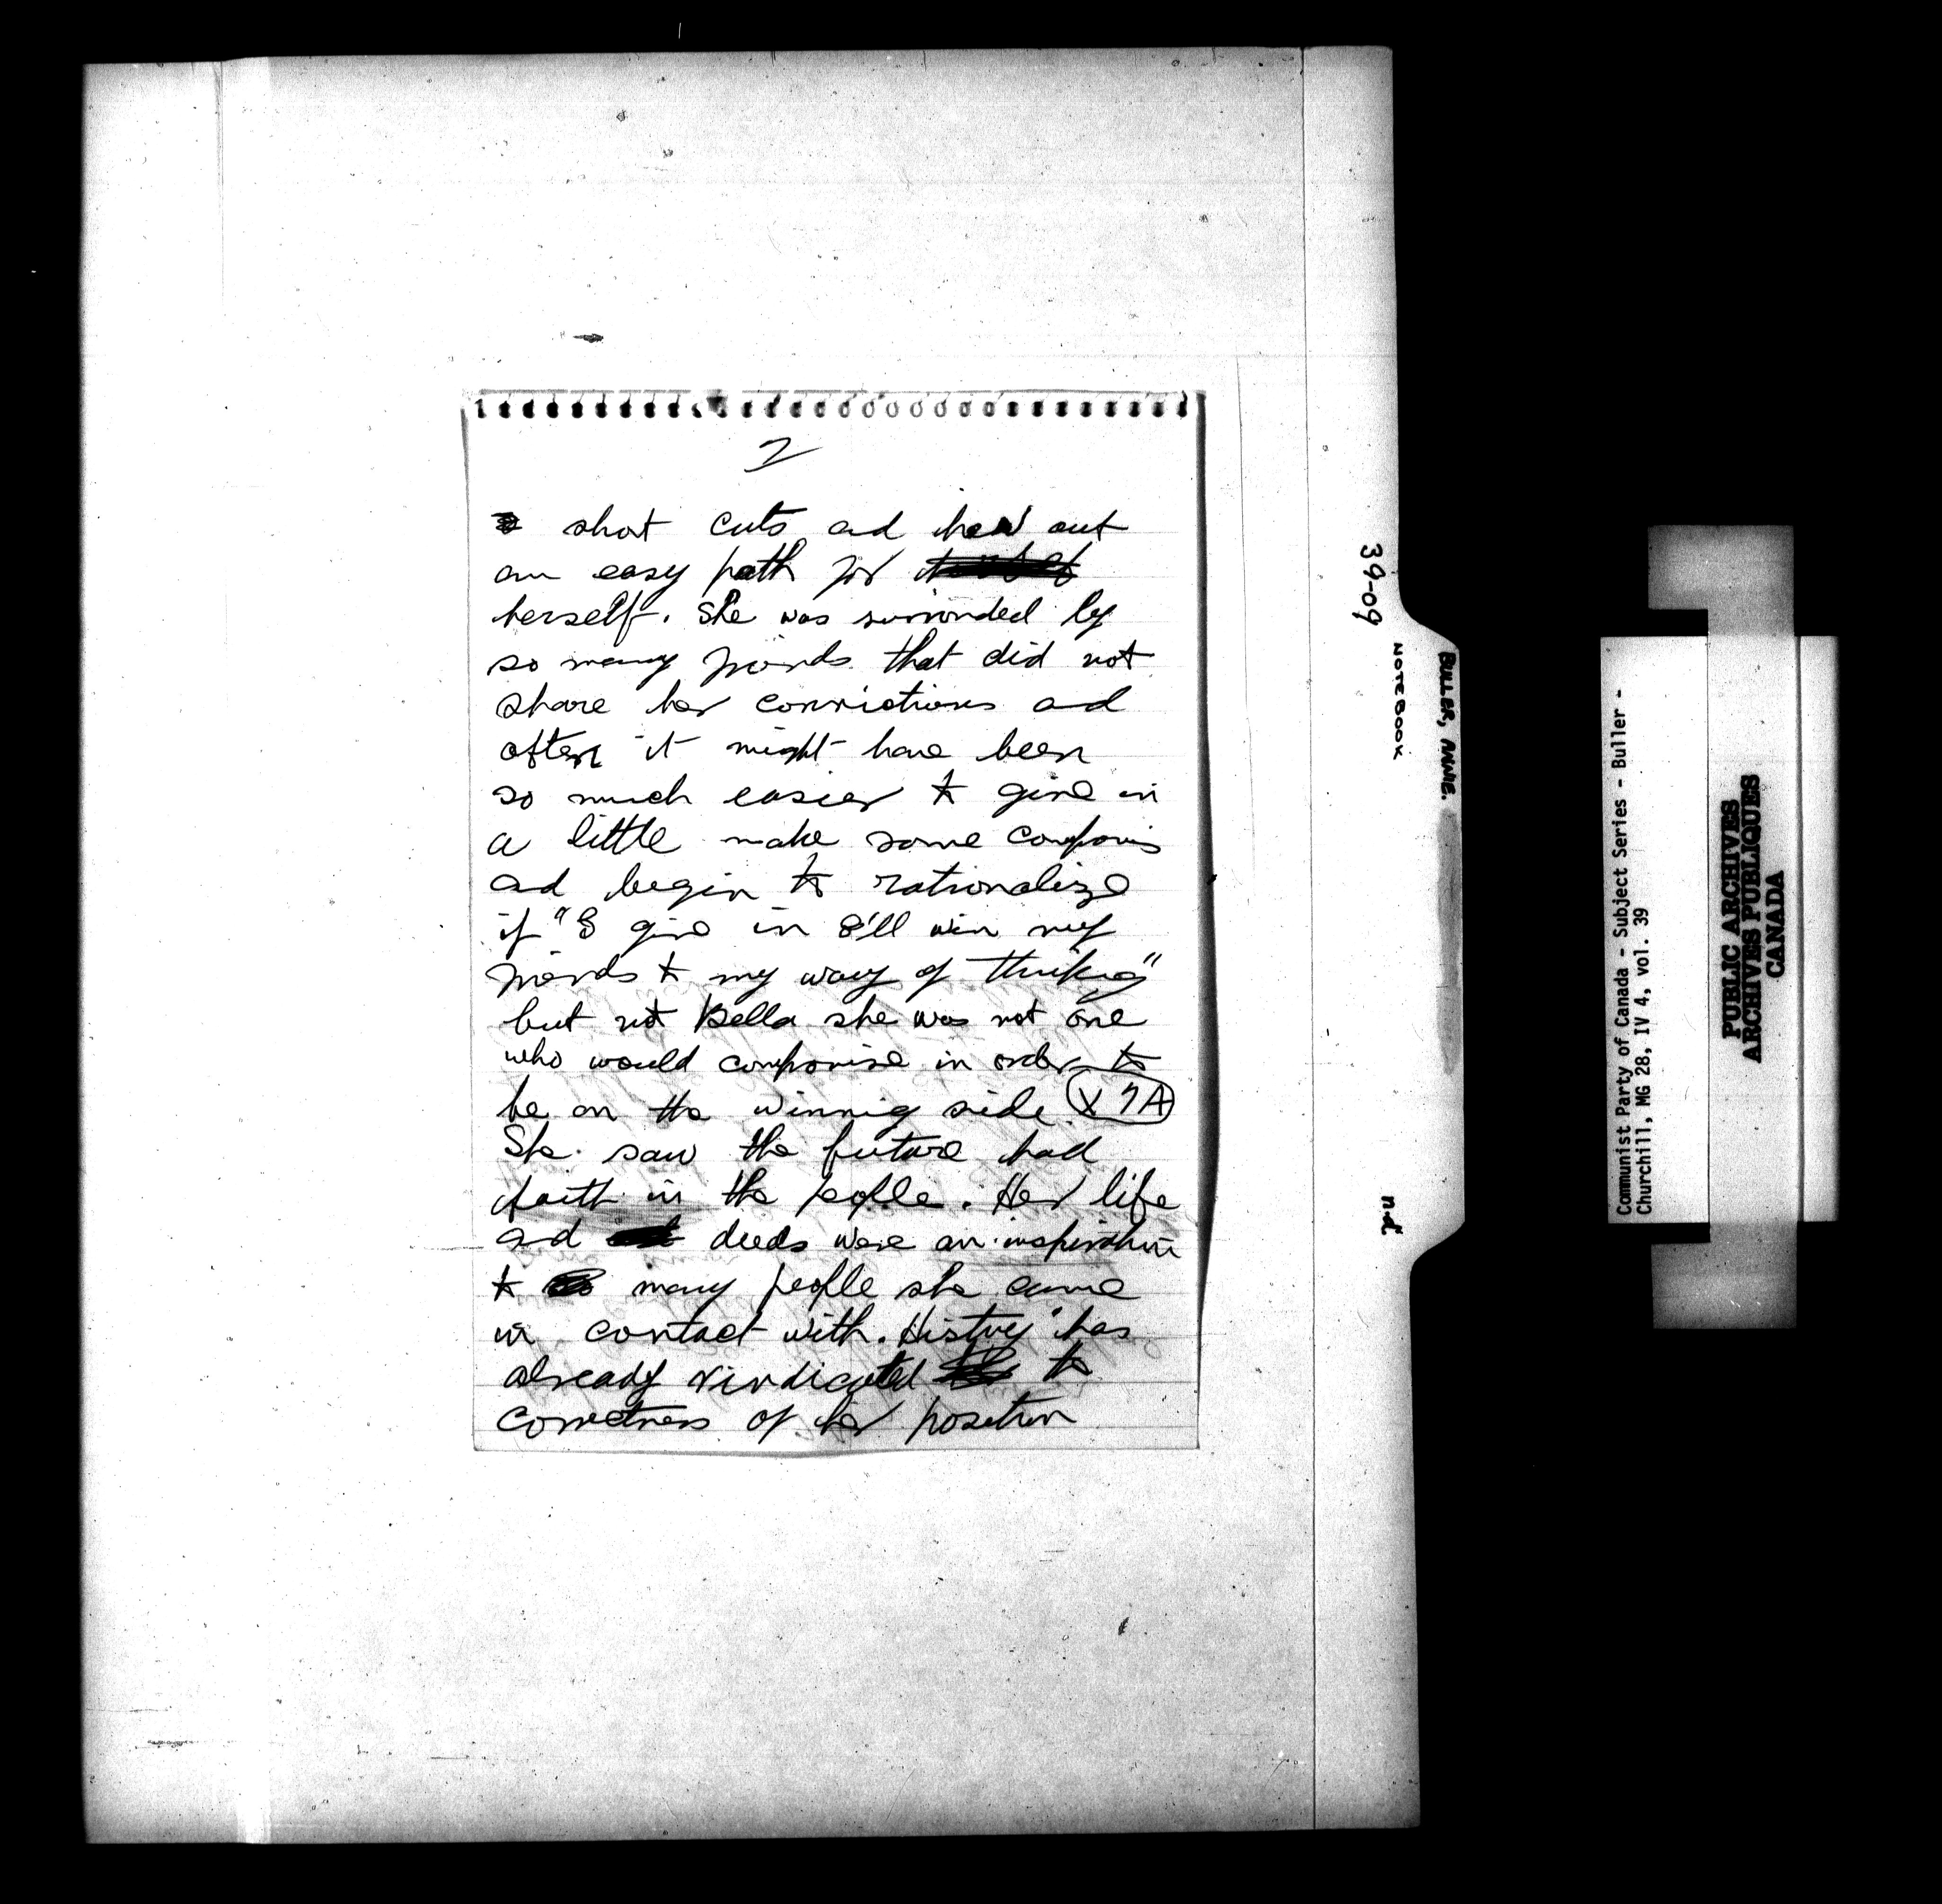 2
shot cuts ad hew out
an easy path for
herself. She was surronded by
so many friends that did not
share her convictions ad
often it might have been
so much easier to give in
a little make some compromis
ad begin to rationalize
if "I give in I'll win my
friends to my way of thinking"
but not Bella she was not one
who would compromise in order to
be on the winnig side. X 7A
She saw the future had
faith in the people. Her life
and deeds were an inspiration
to many people she came
in contact with. History has
already vindicated to
correctness of her position
39-09
NOTEBOOK
BULLER, ANNIE.
n.d.
Communist Party of Canada - Subject Series - Buller -
Churchill, MG 28, IV 4, vol. 39
PUBLIC ARCHIVES
ARCHIVES PUBLIQUES
CANADA